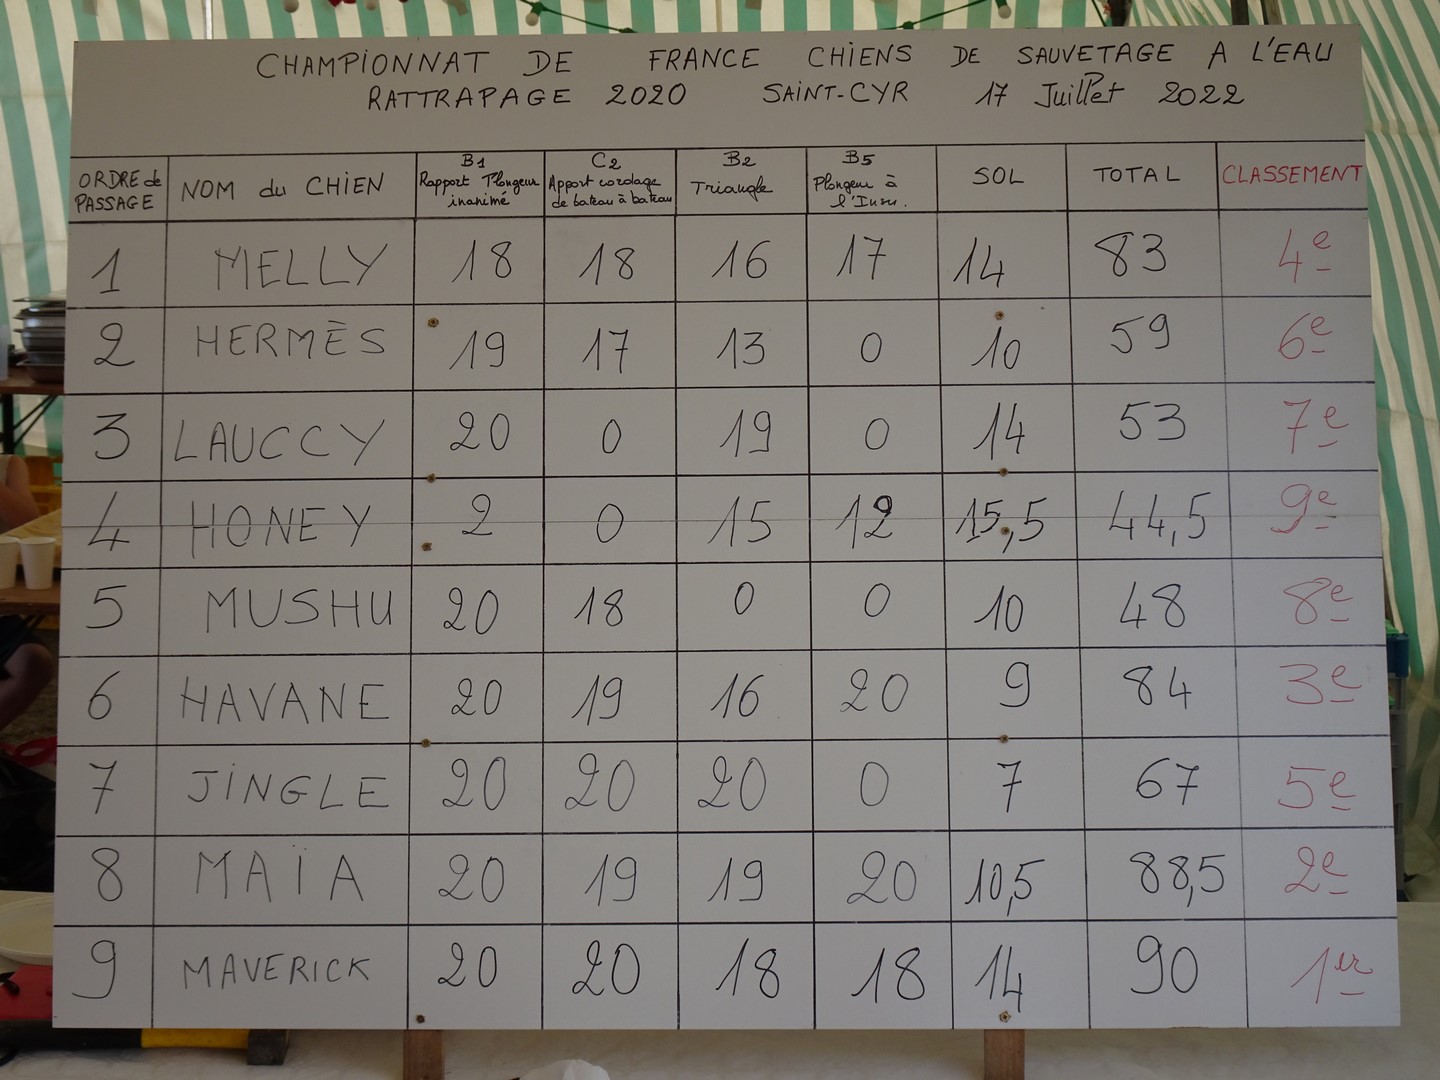 CHAMPIONNAT DE FRANCE CHIENS DE SAUVETAGE A L'EAU
RATTRAPAGE 2020 SAINT-CYR 17 Juillet 2022
ORDRE de PASSAGE NOM du CHIEN B1 Rapport Plongeur inanimé C2 Apport cordage de bateau à bateau B2 Triangle B5 Plongeur à l'Insu. SOL TOTAL CLASSEMENT
1 MELLY 18 18 16 17 14 83 4e
2 HERMÈS 19 17 13 0 10 59 6e
3 LAUCCY 20 0 19 0 14 53 7e
4 HONEY 2 0 15 12 15,5 44,5 9e
5 MUSHU 20 18 0 0 10 48 8e
6 HAVANE 20 19 16 20 9 84 3e
7 JINGLE 20 20 20 0 7 67 5e
8 MAÏA 20 19 19 20 10,5 88,5 2e
9 MAVERICK 20 20 18 18 14 90 1er